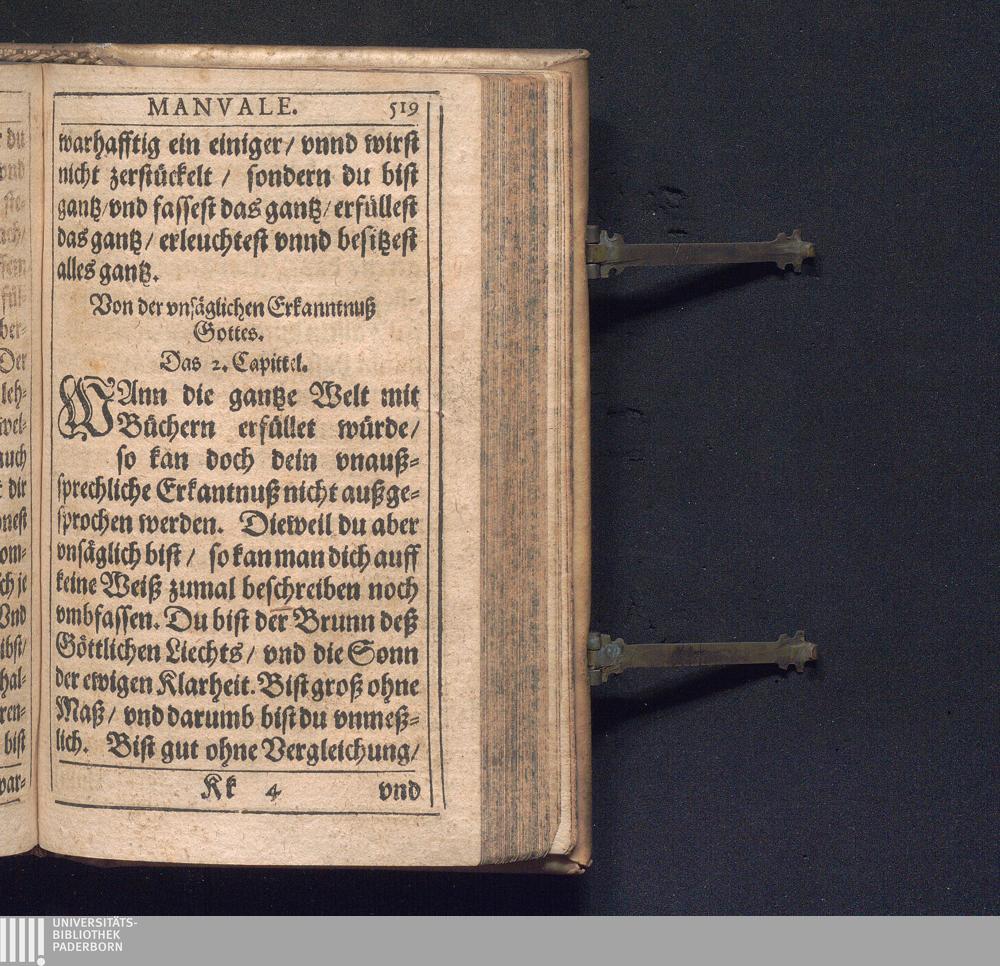 MANVALE. 519
warhafftig ein einiger / vnnd wirst
nicht zerstückelt / sondern du bist
gantz / vnd fassest das gantz / erfüllest
das gantz / erleuchtest vnnd besitzest
alles gantz.
Von der vnsäglichen Erkanntnuß
Gottes.
Das 2. Capittel.
WAnn die gantze Welt mit
Büchern erfüllet würde /
so kan doch dein vnauß-
sprechliche Erkantnuß nicht außge-
sprochen werden. Dieweil du aber
vnsäglich bist / so kan man dich auff
keine Weiß zumal beschreiben noch
vmbfassen. Du bist der Brunn deß
Göttlichen Liechts / vnd die Sonn
der ewigen Klarheit. Bist groß ohne
Maß / vnd darumb bist du vnmeß-
lich. Bist gut ohne Vergleichung /
Kk 4 vnd
UNIVERSITÄTS-
BIBLIOTHEK
PADERBORN